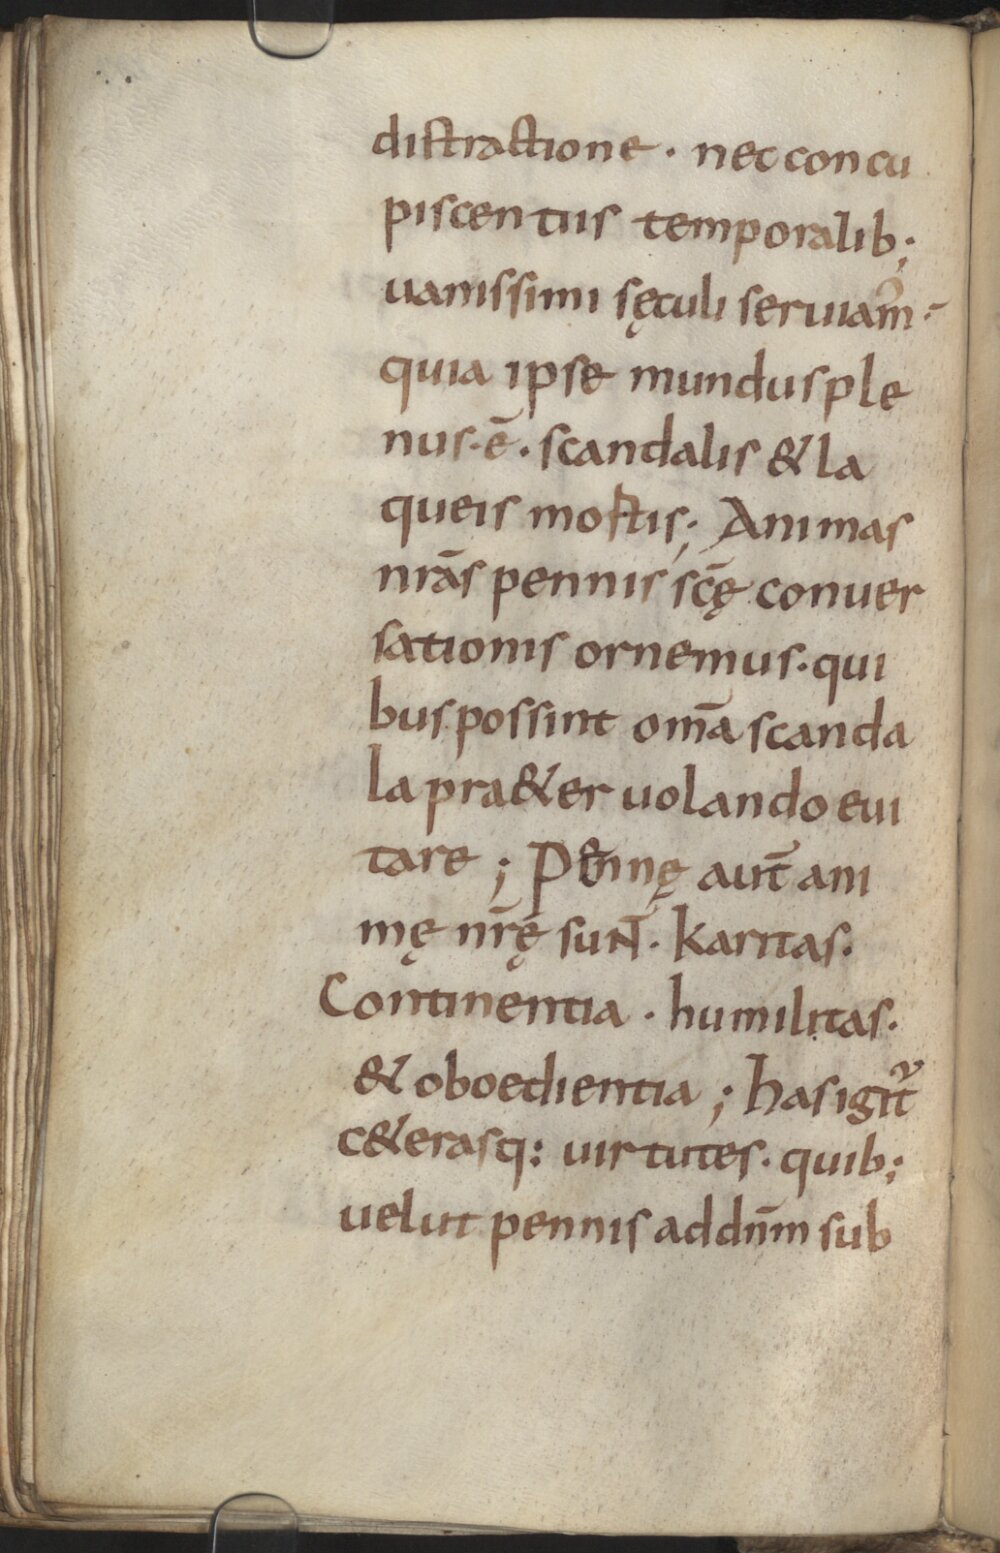 distractione · nec concu
piscentiis temporalib;
uanissimi sęculi seruiam᷒·
quia ipse mundus ple
nus·ē· scandalis & la
queis mortis; Animas
nrās pennis scę̄ conuer
sationis ornemus· qui
bus possint om̄a scanda
la pra&er uolando eui
tare ; Pennę aut̄ ani
mę nrę̄ sunt̄· karitas·
Continentia · humilitas·
& oboedientia ; has igit᷒
c&erasq: uirtutes· quib;
uelut pennis ad dn̄m sub